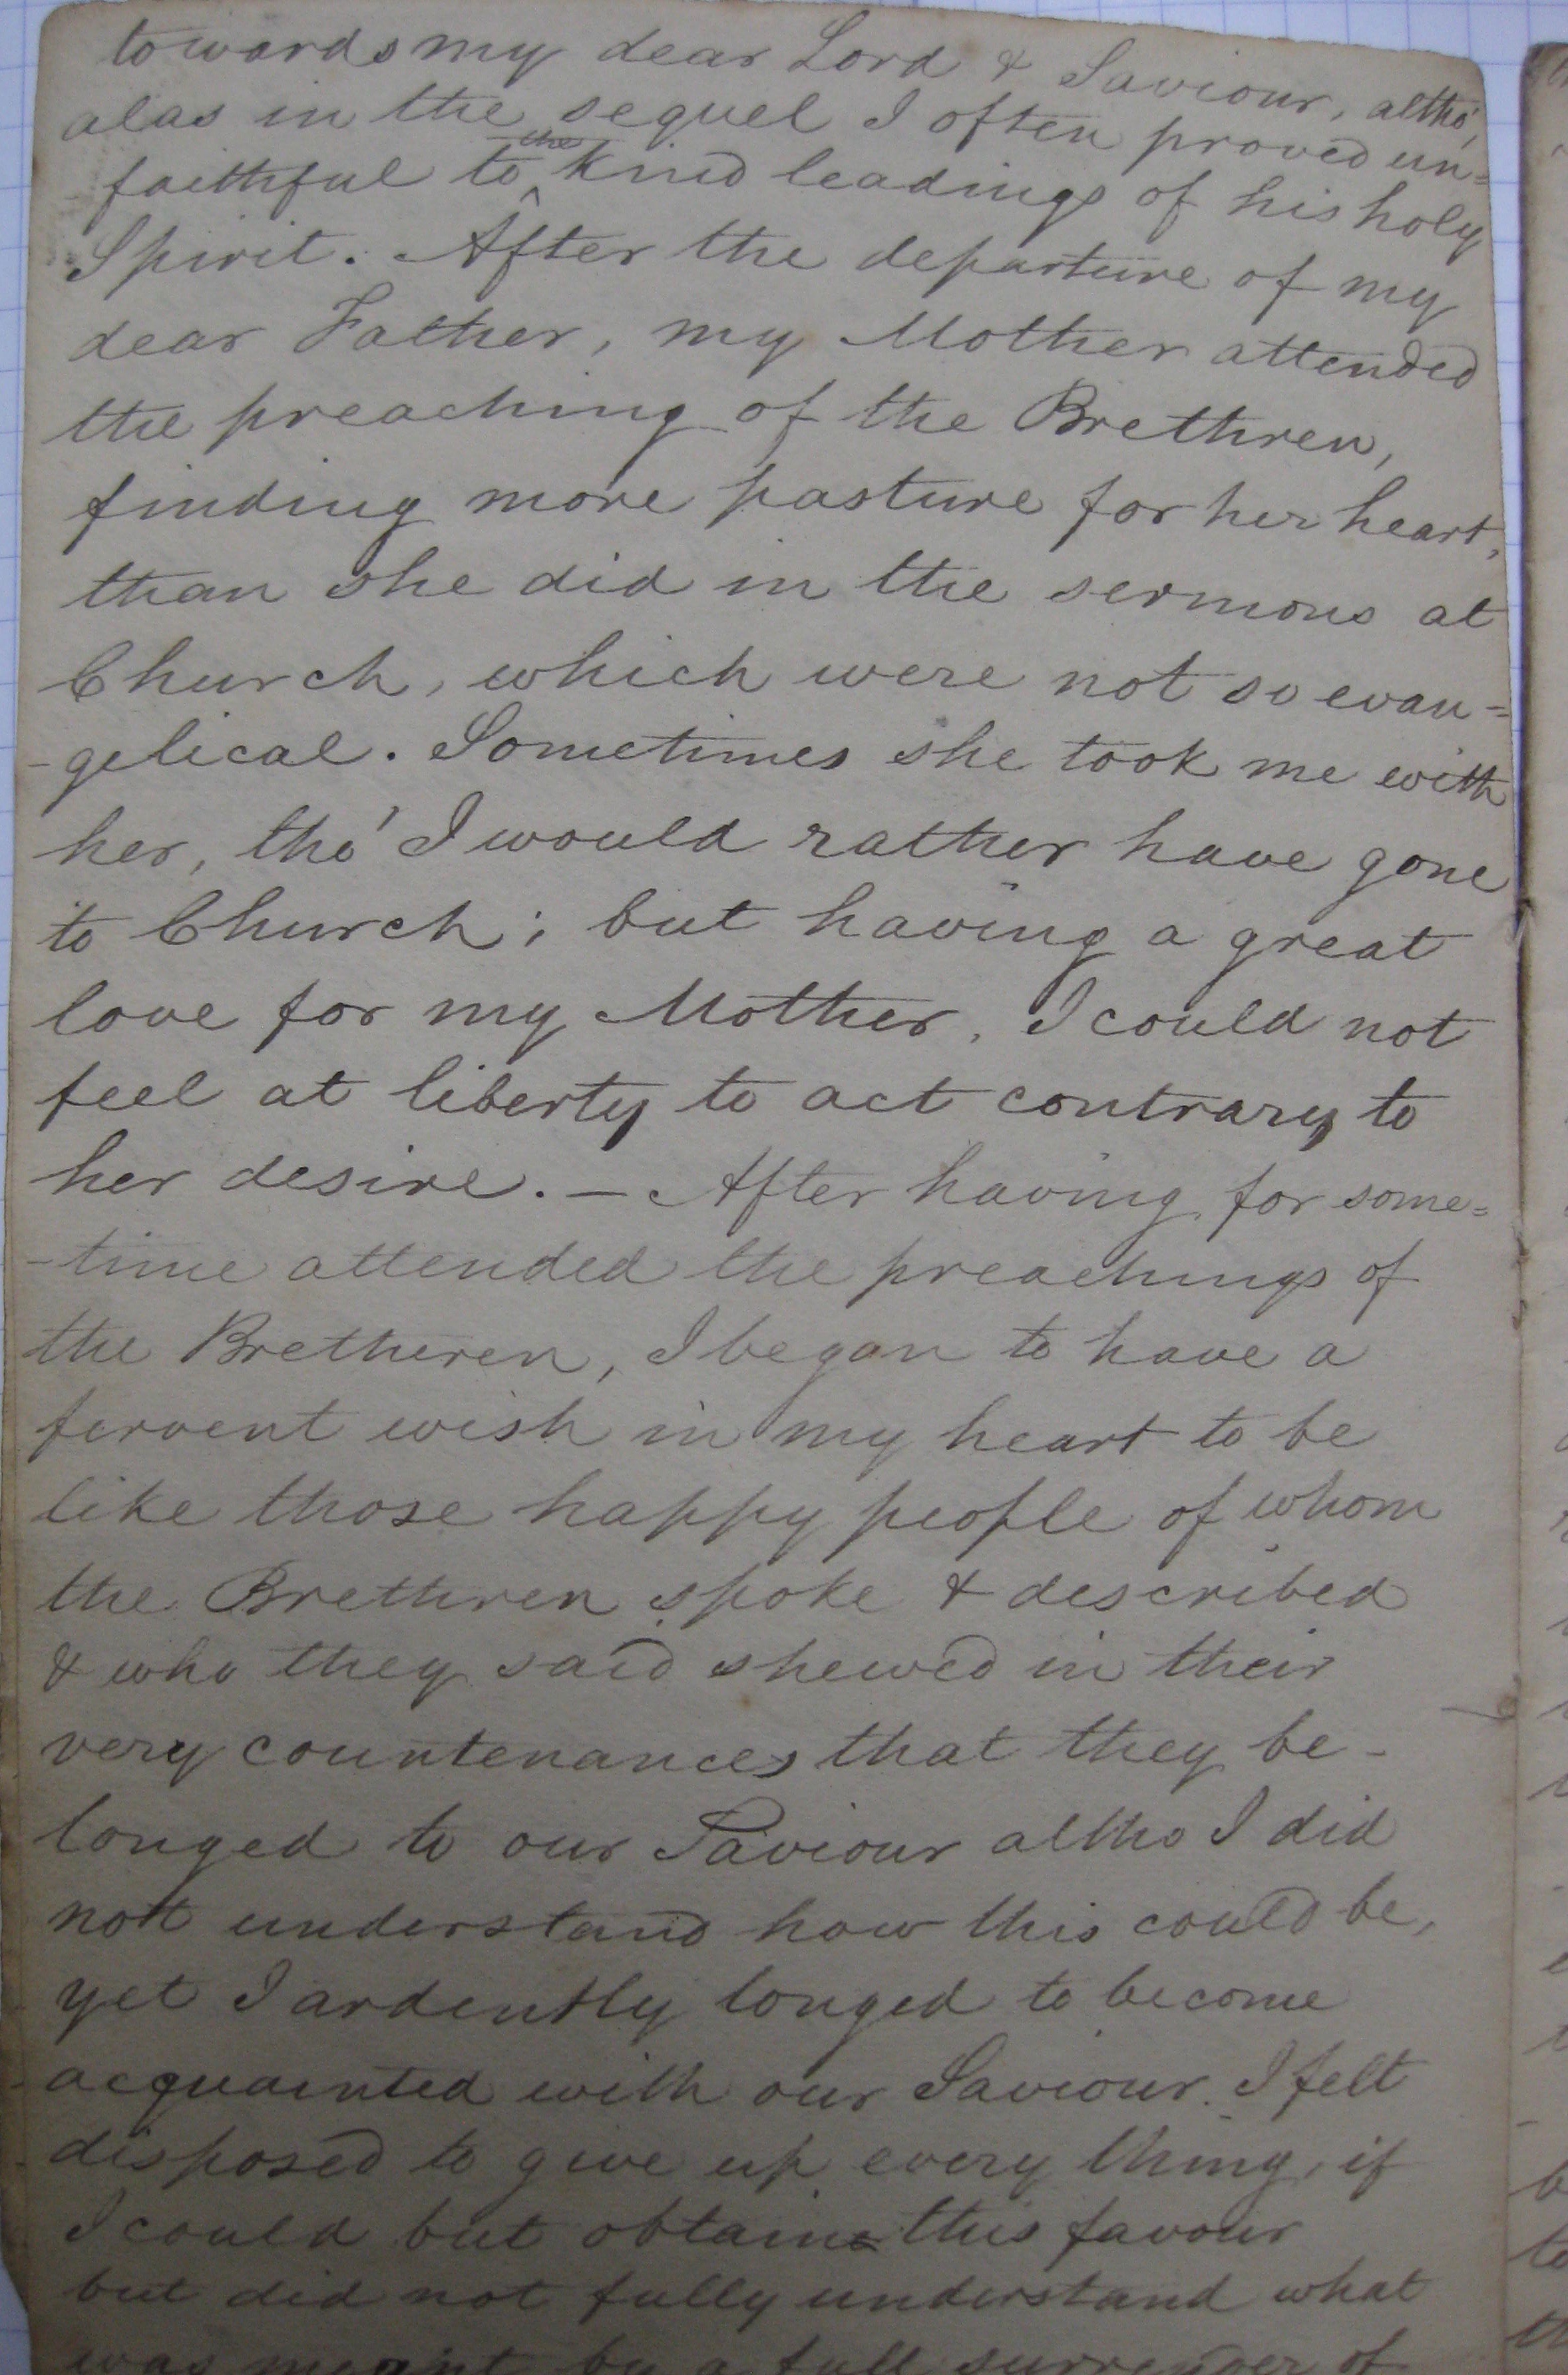 towards my dear Lord & Saviour, altho',
alas in the sequel I often proved un=
faithful to the kind leadings of his holy
Spirit. After the departure of my
dear Father, my Mother attended
the preaching of the Brethren,
finding more pasture for her heart,
than she did in the sermons at
Church, which were not so evan=
-gelical. Sometimes she took me with
her, tho' I would rather have gone
to Church; but having a great
love for my Mother, I could not
feel at liberty to act contrary to
her desire. - After having for some=
-time attended the preachings of
the Bretheren, I began to have a
fervent wish in my heart to be
like those happy people of whom
the Brethren spoke & described
& who they said shewed in their
very countenances that they be-
longed to our Saviour altho I did
not understand how this could be,
yet I ardently longed to become
acquainted with our Saviour. I felt
disposed to give up every thing, if
I could but obtain this favour
but did not fully understand what
was meant by a full surrender of